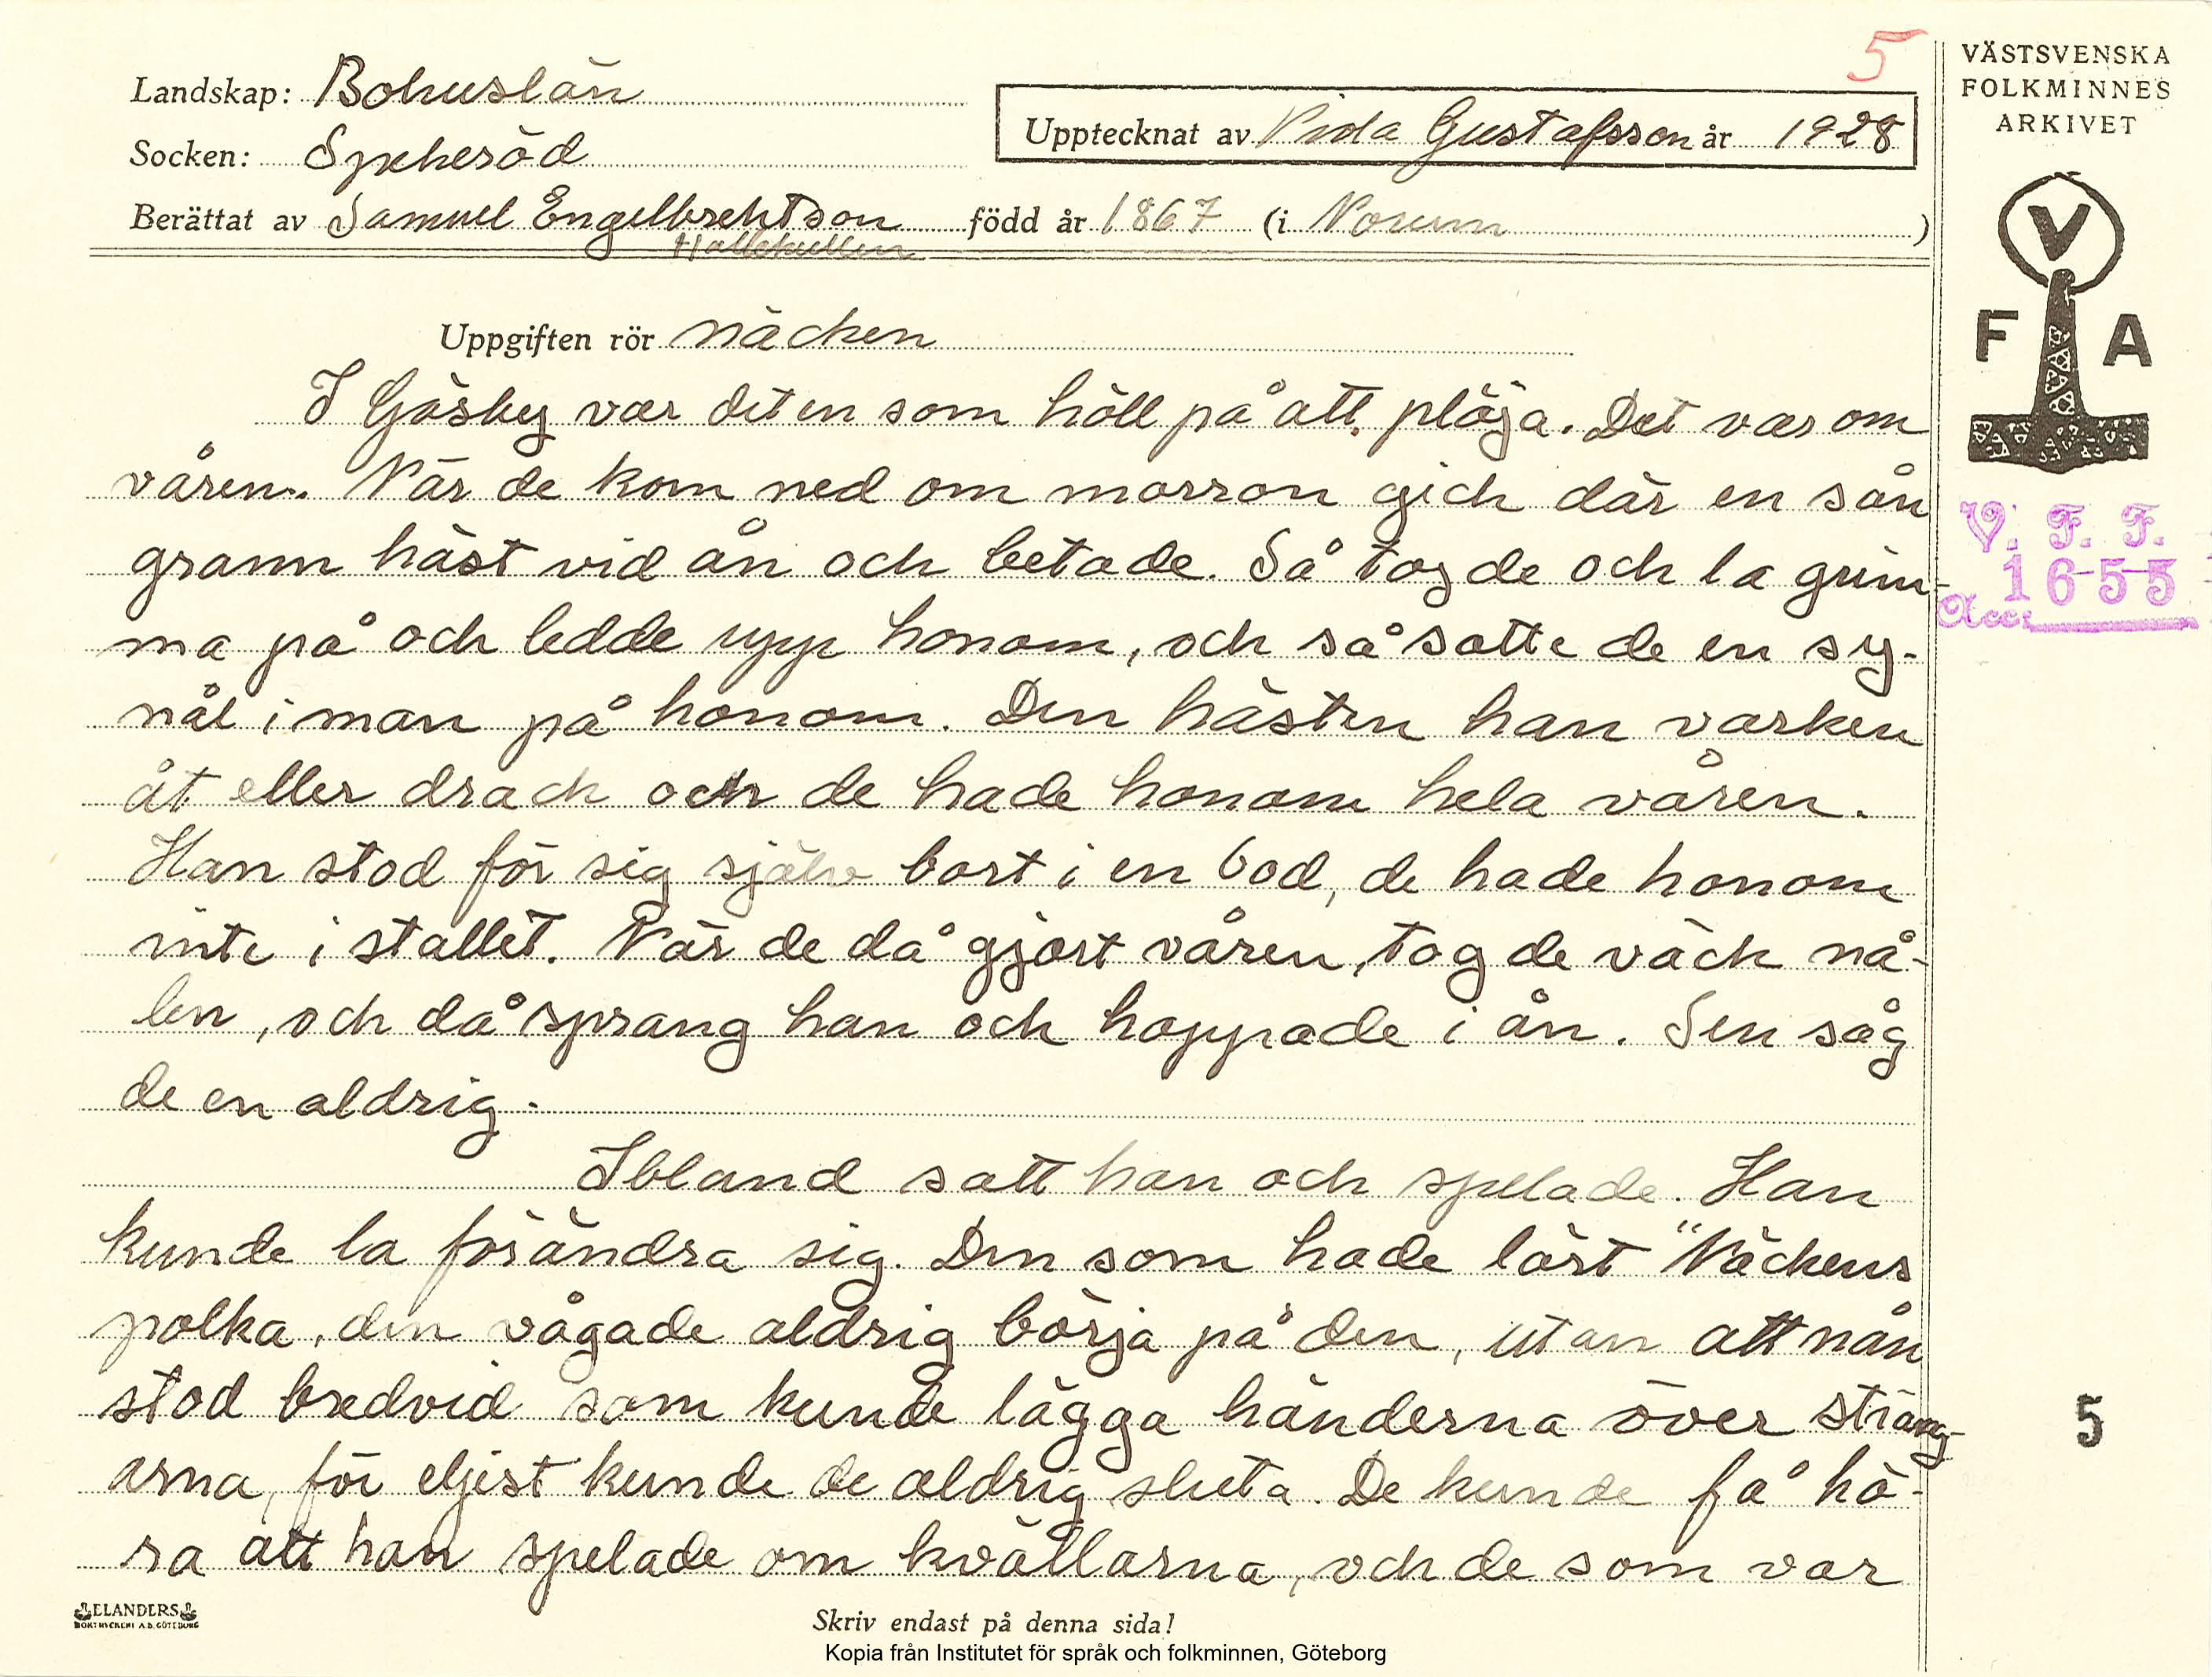 5
Landskap: Bohuslän
Socken: Spekeröd
Upptecknat av Vida Gustafsson år 1928
Berättat av Samuel Engelbrehtson född år 1867 (i Norum )
Hällekullen
VÄSTSVENSKA
FOLKMINNES
ARKIVET
V
F A
V. F. F.
1655
Acc:
Uppgiften rör näcken
I Gåsby var det en som höll på att plöja. Det var om
våren. När de kom ned om morron gick där en sån
grann häst vid ån och betade. Så tog de och la grim-
ma på och ledde upp honom, och så satte de en sy-
nål i man på honom. Den hästen han varken
åt eller drack och de hade honom hela våren.
Han stod för sig själv bort i en bod, de hade honom
inte i stallet. När de då gjort våren, tog de väck nå-
len, och då sprang han och hoppade i ån. Sen såg
de en aldrig.
Ibland satt han och spelade. Han
kunde la förändra sig. Den som hade lärt "Näckens
polka, den vågade aldrig börja på den, utan att nån
stod bredvid som kunde lägga händerna över sträng-
arna, för eljest kunde de aldrig sluta. De kunde få hö-
ra att han spelade om kvällarna, och de som var
5
ELANDERS
BOKTRYCKERI A.B. GÖTEBORG
Skriv endast på denna sida!
Kopia från Institutet för språk och folkminnen, Göteborg